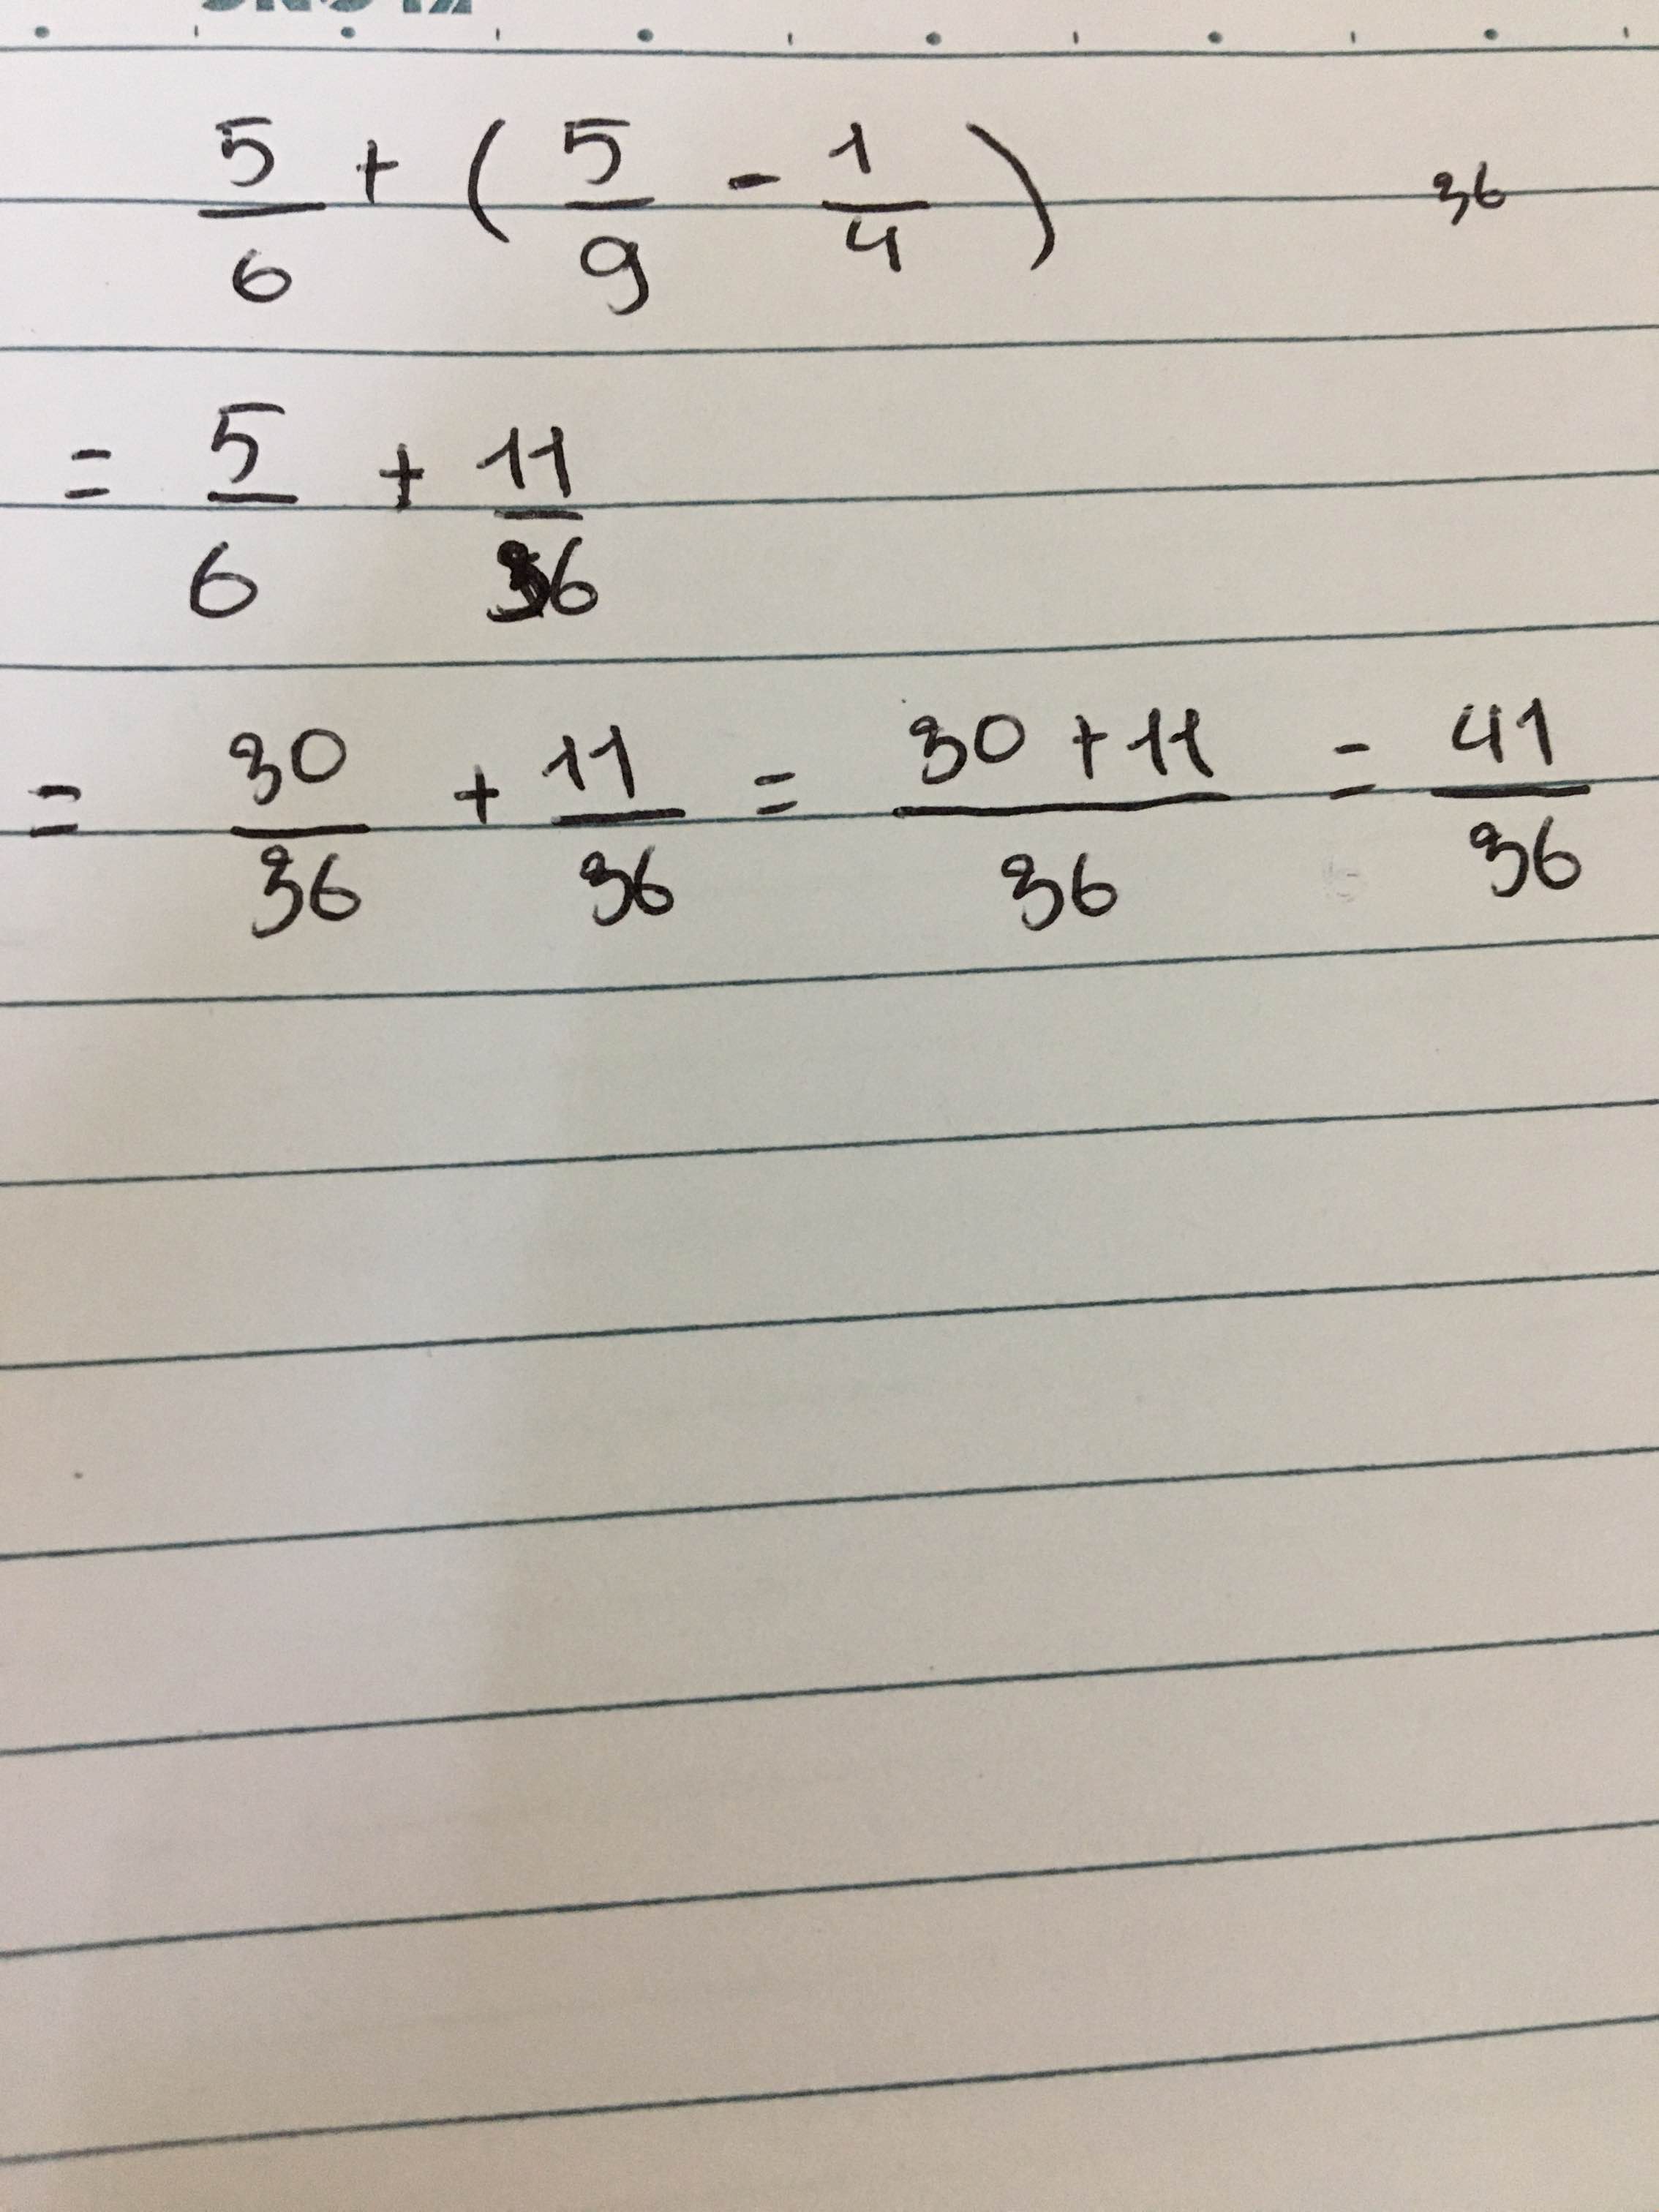 5/6 + ( 5/9 - 1/4 ) 36
= 5/6 + 11/36
= 30/36 + 11/36 = 30 + 11/36 = 41/36